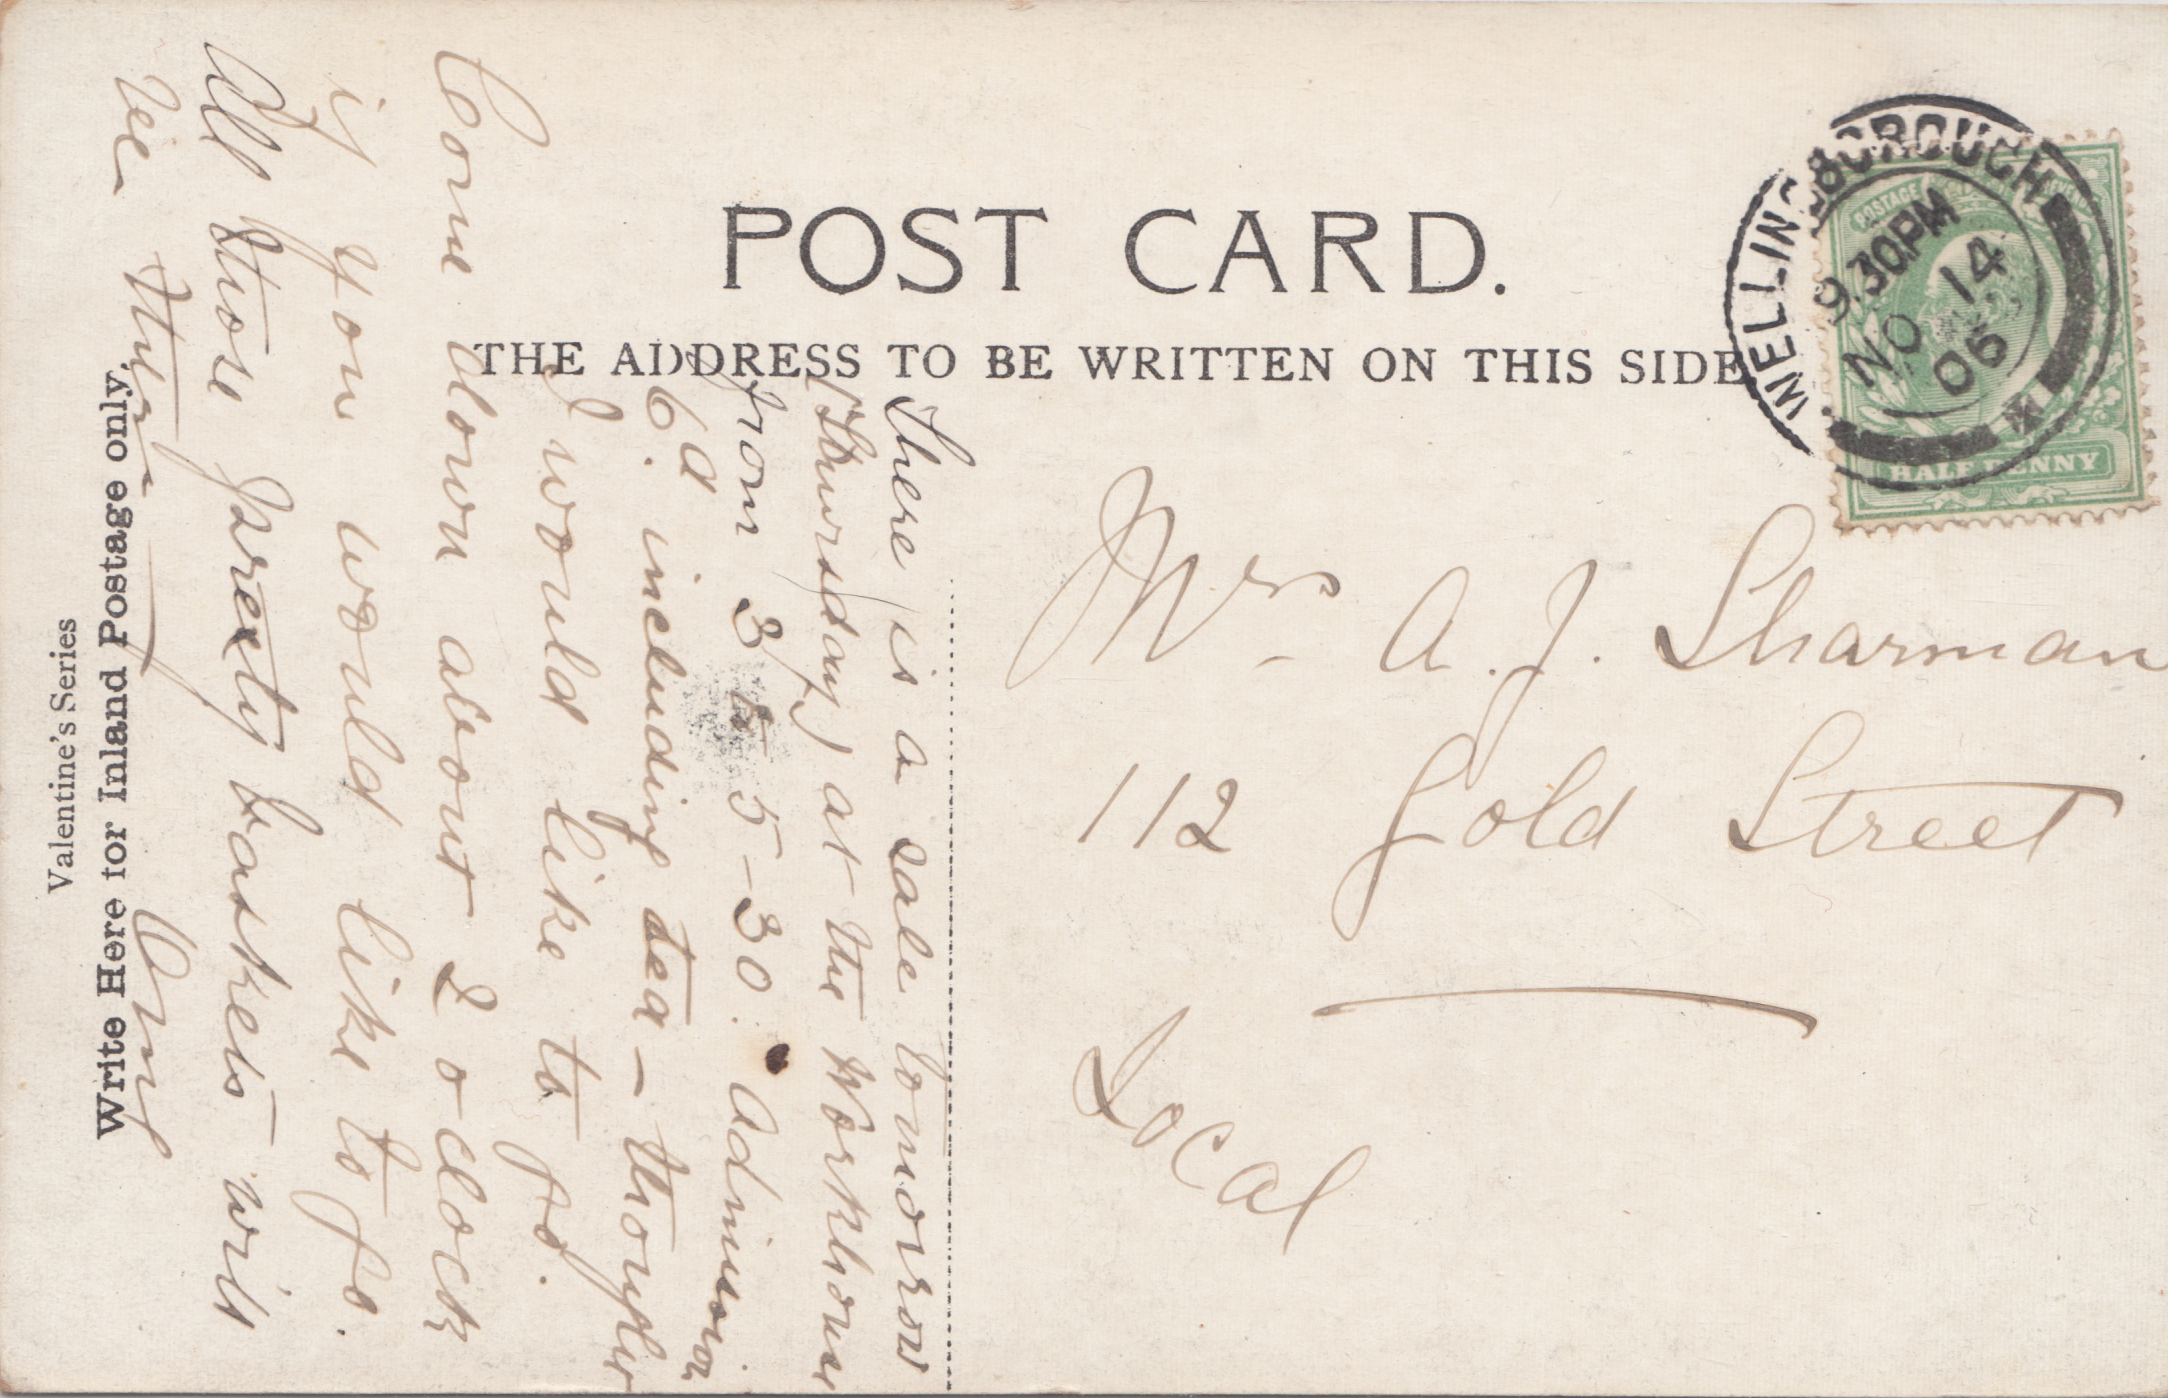 POST CARD.
THE ADDRESS TO BE WRITTEN ON THIS SIDE
WELLINGBOROUGH
9.30PM
NO 14
06
POSTAGE
HALFPENNY
Mrs A. J. Sharman
112 Gold Street
Local
There is a sale tomorrow
(Thursday) at the Workhouse
from 3 to 5-30. Admission
6d. including tea - thought
I would like to go.
Come down about 2 o clock
if you would like to go.
All those pretty baskets will
be there
Amy
Write Here for Inland Postage only.
Valentine's Series